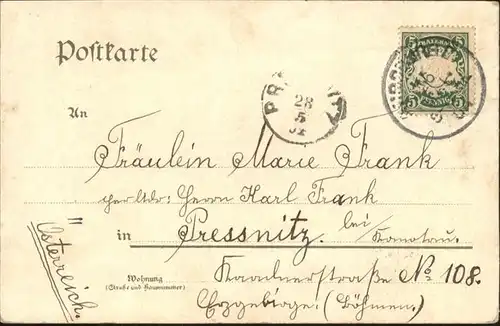 Postkarte
5 BAYERN 5
5 PFENNIG 5
28
5
An
Fräulein Marie Frank
Herrn Karl Frank
in Pressnitz. bei
Komotau.
Wohnung
(Straße und Hausnummer)
Kaadnerstraße No 108.
Erzgebirge. (Böhmen.)
Österreich.